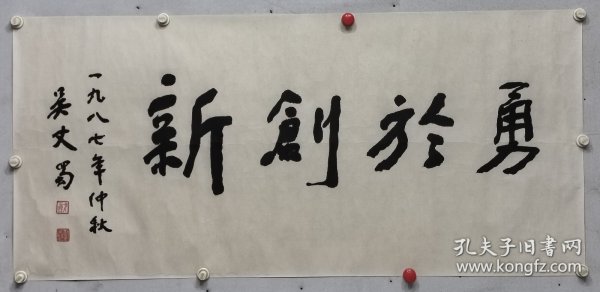 勇於創新
一九八七年仲秋
吴丈蜀
孔夫子旧书网
www.kongfz.com